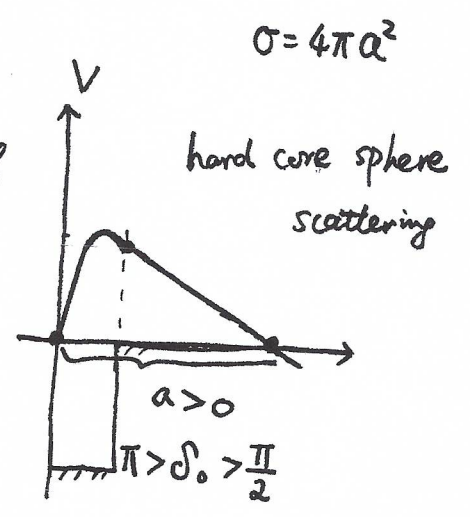 σ = 4πa²
V
hard core sphere
scattering
a > 0
π > δ₀ > π/2